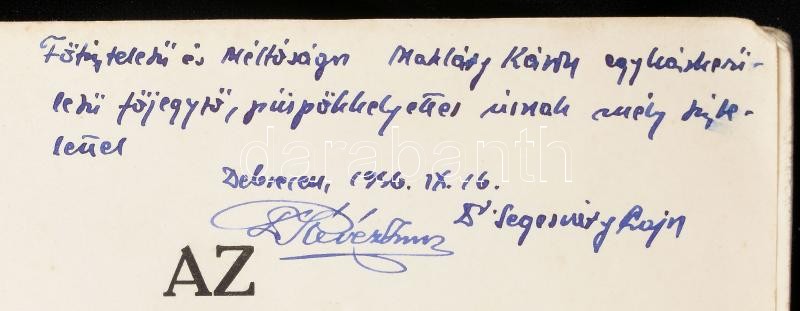 Főtiszteletű és Méltóságu Makláry Károly egyházkerü-
leti főjegyző, püspökhelyettes úrnak mély tiszte-
lettel
darabanth
Debrecen, 1936. IX. 16.
Dr Révész Imre Dr. Segesváry Lajos
AZ